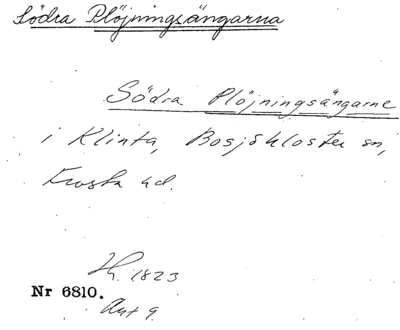 Södra Plöjningsängarna
Södra Plöjningsängarne
i Klinta, Bosjökloster sn,
Frosta hd.
H. 1823
Nr 6810.
Akt 9